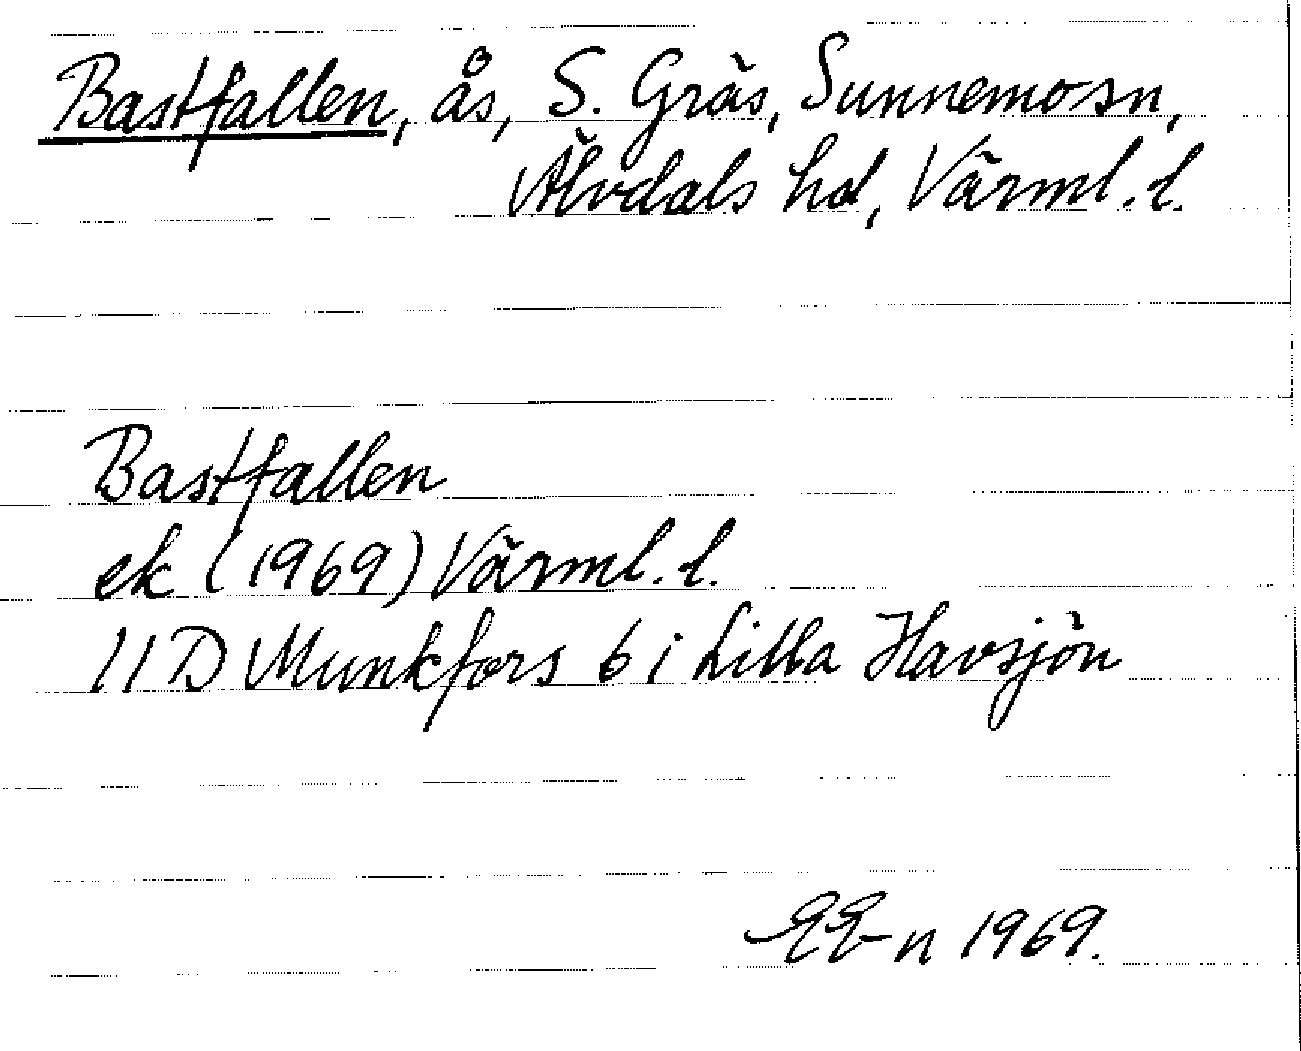 Bastfallen, ås, S. Gräs, Sunnemo sn,
Älvdals hd, Värml. l.
Bastfallen
ek (1969) Värml. l.
11 D Munkfors 6 i Lilla Havsjön
EE-n 1969.